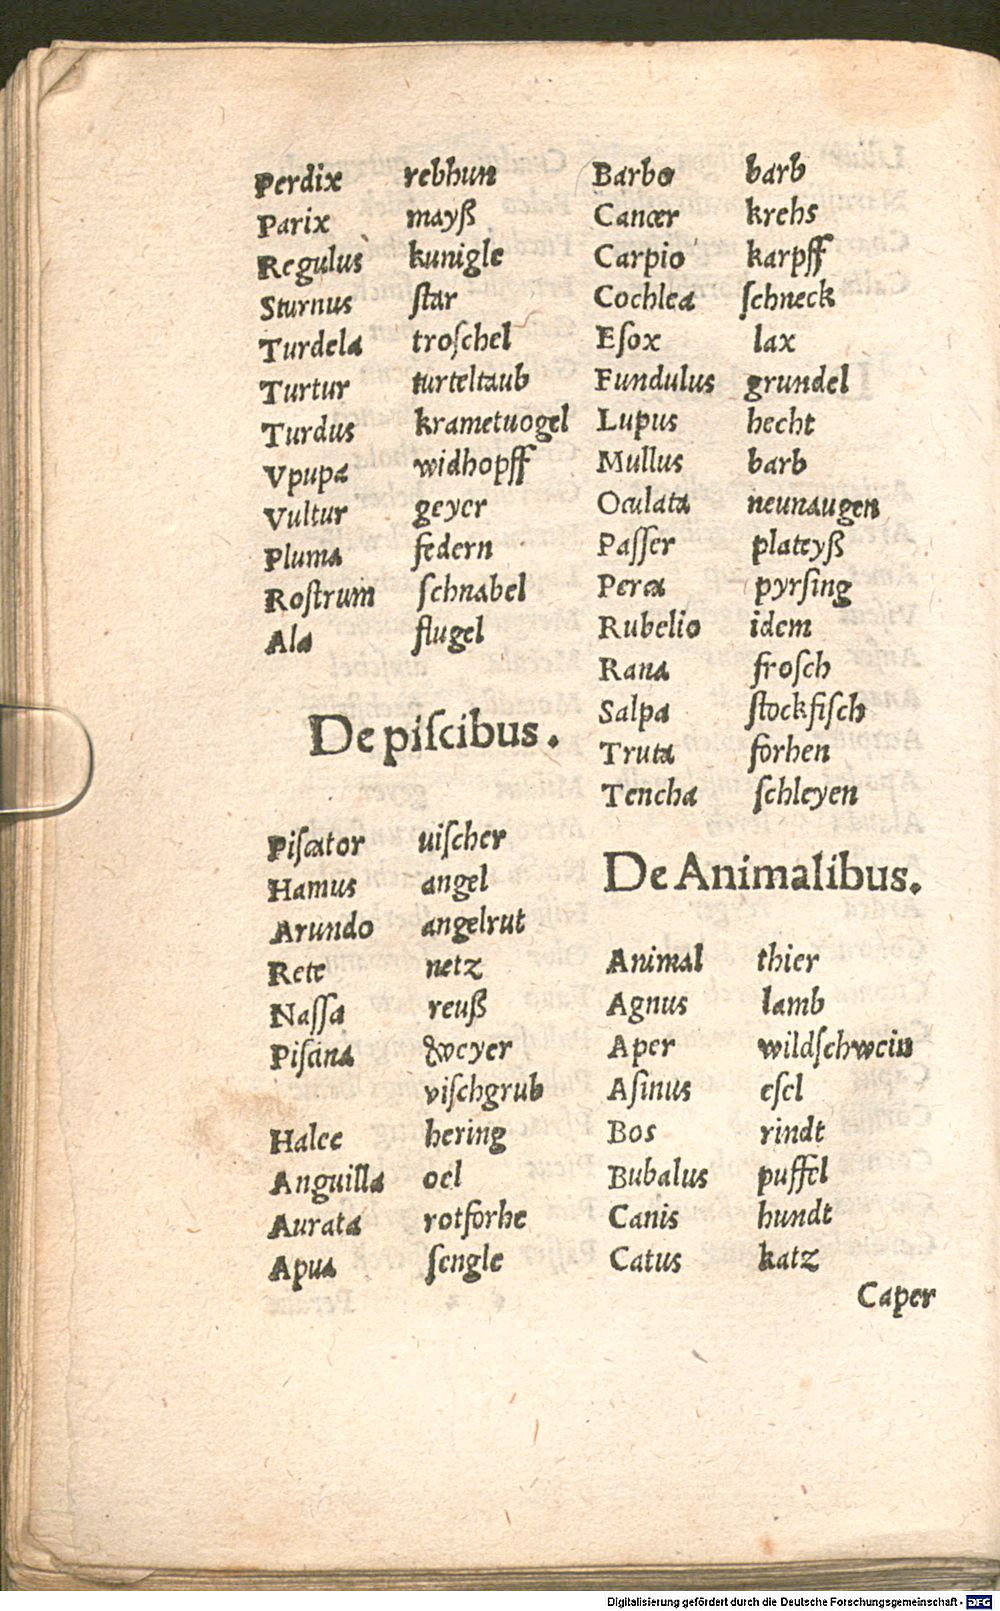 Perdix rebhun
Parix mayß
Regulus kunigle
Sturnus ſtar
Turdela troſchel
Turtur turteltaub
Turdus krametuogel
Vpupa widhopff
Vultur geyer
Pluma federn
Roſtrum ſchnabel
Ala flugel
De piſcibus.
Piſcator uiſcher
Hamus angel
Arundo angelrut
Rete netz
Naſſa reuß
Piſcina weyer
viſchgrub
Halec hering
Anguilla oel
Aurata rotforhe
Apua ſengle
Barbo barb
Cancer krebs
Carpio karpff
Cochlea ſchneck
Eſox lax
Fundulus grundel
Lupus hecht
Mullus barb
Oculata neunaugen
Paſſer plateyß
Perca pyrſing
Rubelio idem
Rana froſch
Salpa ſtockfiſch
Truta forhen
Tencha ſchleyen
De Animalibus.
Animal thier
Agnus lamb
Aper wildſchwein
Aſinus eſel
Bos rindt
Bubalus puffel
Canis hundt
Catus katz
Caper
Digitalisierung gefördert durch die Deutsche Forschungsgemeinschaft - DFG